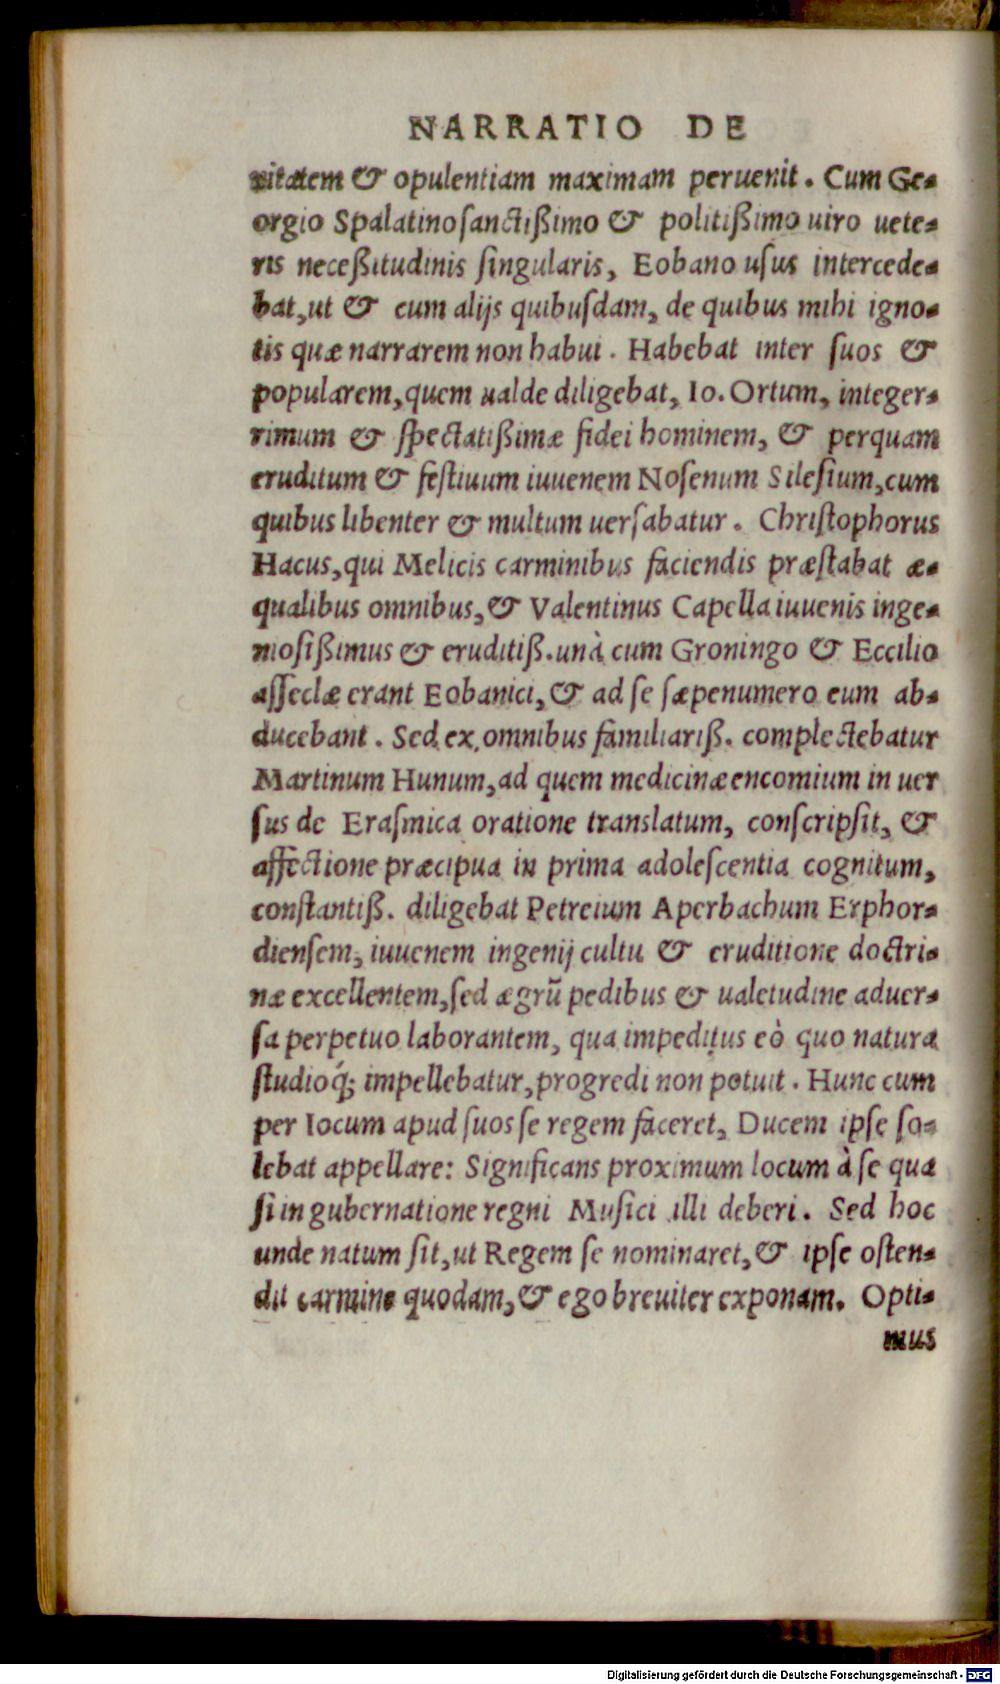 NARRATIO DE
uitatem & opulentiam maximam peruenit. Cum Ge-
orgio Spalatino ſanctißimo & politißimo uiro uete-
ris neceßitudinis ſingularis, Eobano uſus intercede-
bat, ut & cum alijs quibuſdam, de quibus mihi igno-
tis quæ narrarem non habui. Habebat inter ſuos &
popularem, quem ualde diligebat, Io. Ortum, integer-
rimum & ſpectatißimæ fidei hominem, & perquam
eruditum & feſtiuum iuuenem Noſenum Sileſium, cum
quibus libenter & multum uerſabatur. Chriſtophorus
Hacus, qui Melicis carminibus faciendis præſtabat æ-
qualibus omnibus, & Valentinus Capella iuuenis inge-
nioſißimus & eruditiß. unà cum Groningo & Eccilio
aſſeclæ erant Eobanici, & ad ſe ſæpenumero eum ab-
ducebant. Sed ex omnibus familiariß. complectebatur
Martinum Hunum, ad quem medicinæ encomium in uer
ſus de Eraſmica oratione translatum, conſcripſit, &
affectione præcipua in prima adoleſcentia cognitum,
conſtantiß. diligebat Petreium Aperbachum Erphor-
dienſem, iuuenem ingenij cultu & eruditione doctri-
næ excellentem, ſed ægrũ pedibus & ualetudine aduer-
ſa perpetuo laborantem, qua impeditus eò quo natura
ſtudioq́; impellebatur, progredi non potuit. Hunc cum
per Iocum apud ſuos ſe regem faceret, Ducem ipſe ſo-
lebat appellare: Significans proximum locum à ſe qua
ſi in gubernatione regni Muſici illi deberi. Sed hoc
unde natum ſit, ut Regem ſe nominaret, & ipſe oſten-
dit carmine quodam, & ego breuiter exponam. Opti-
mus
Digitalisierung gefördert durch die Deutsche Forschungsgemeinschaft - DFG